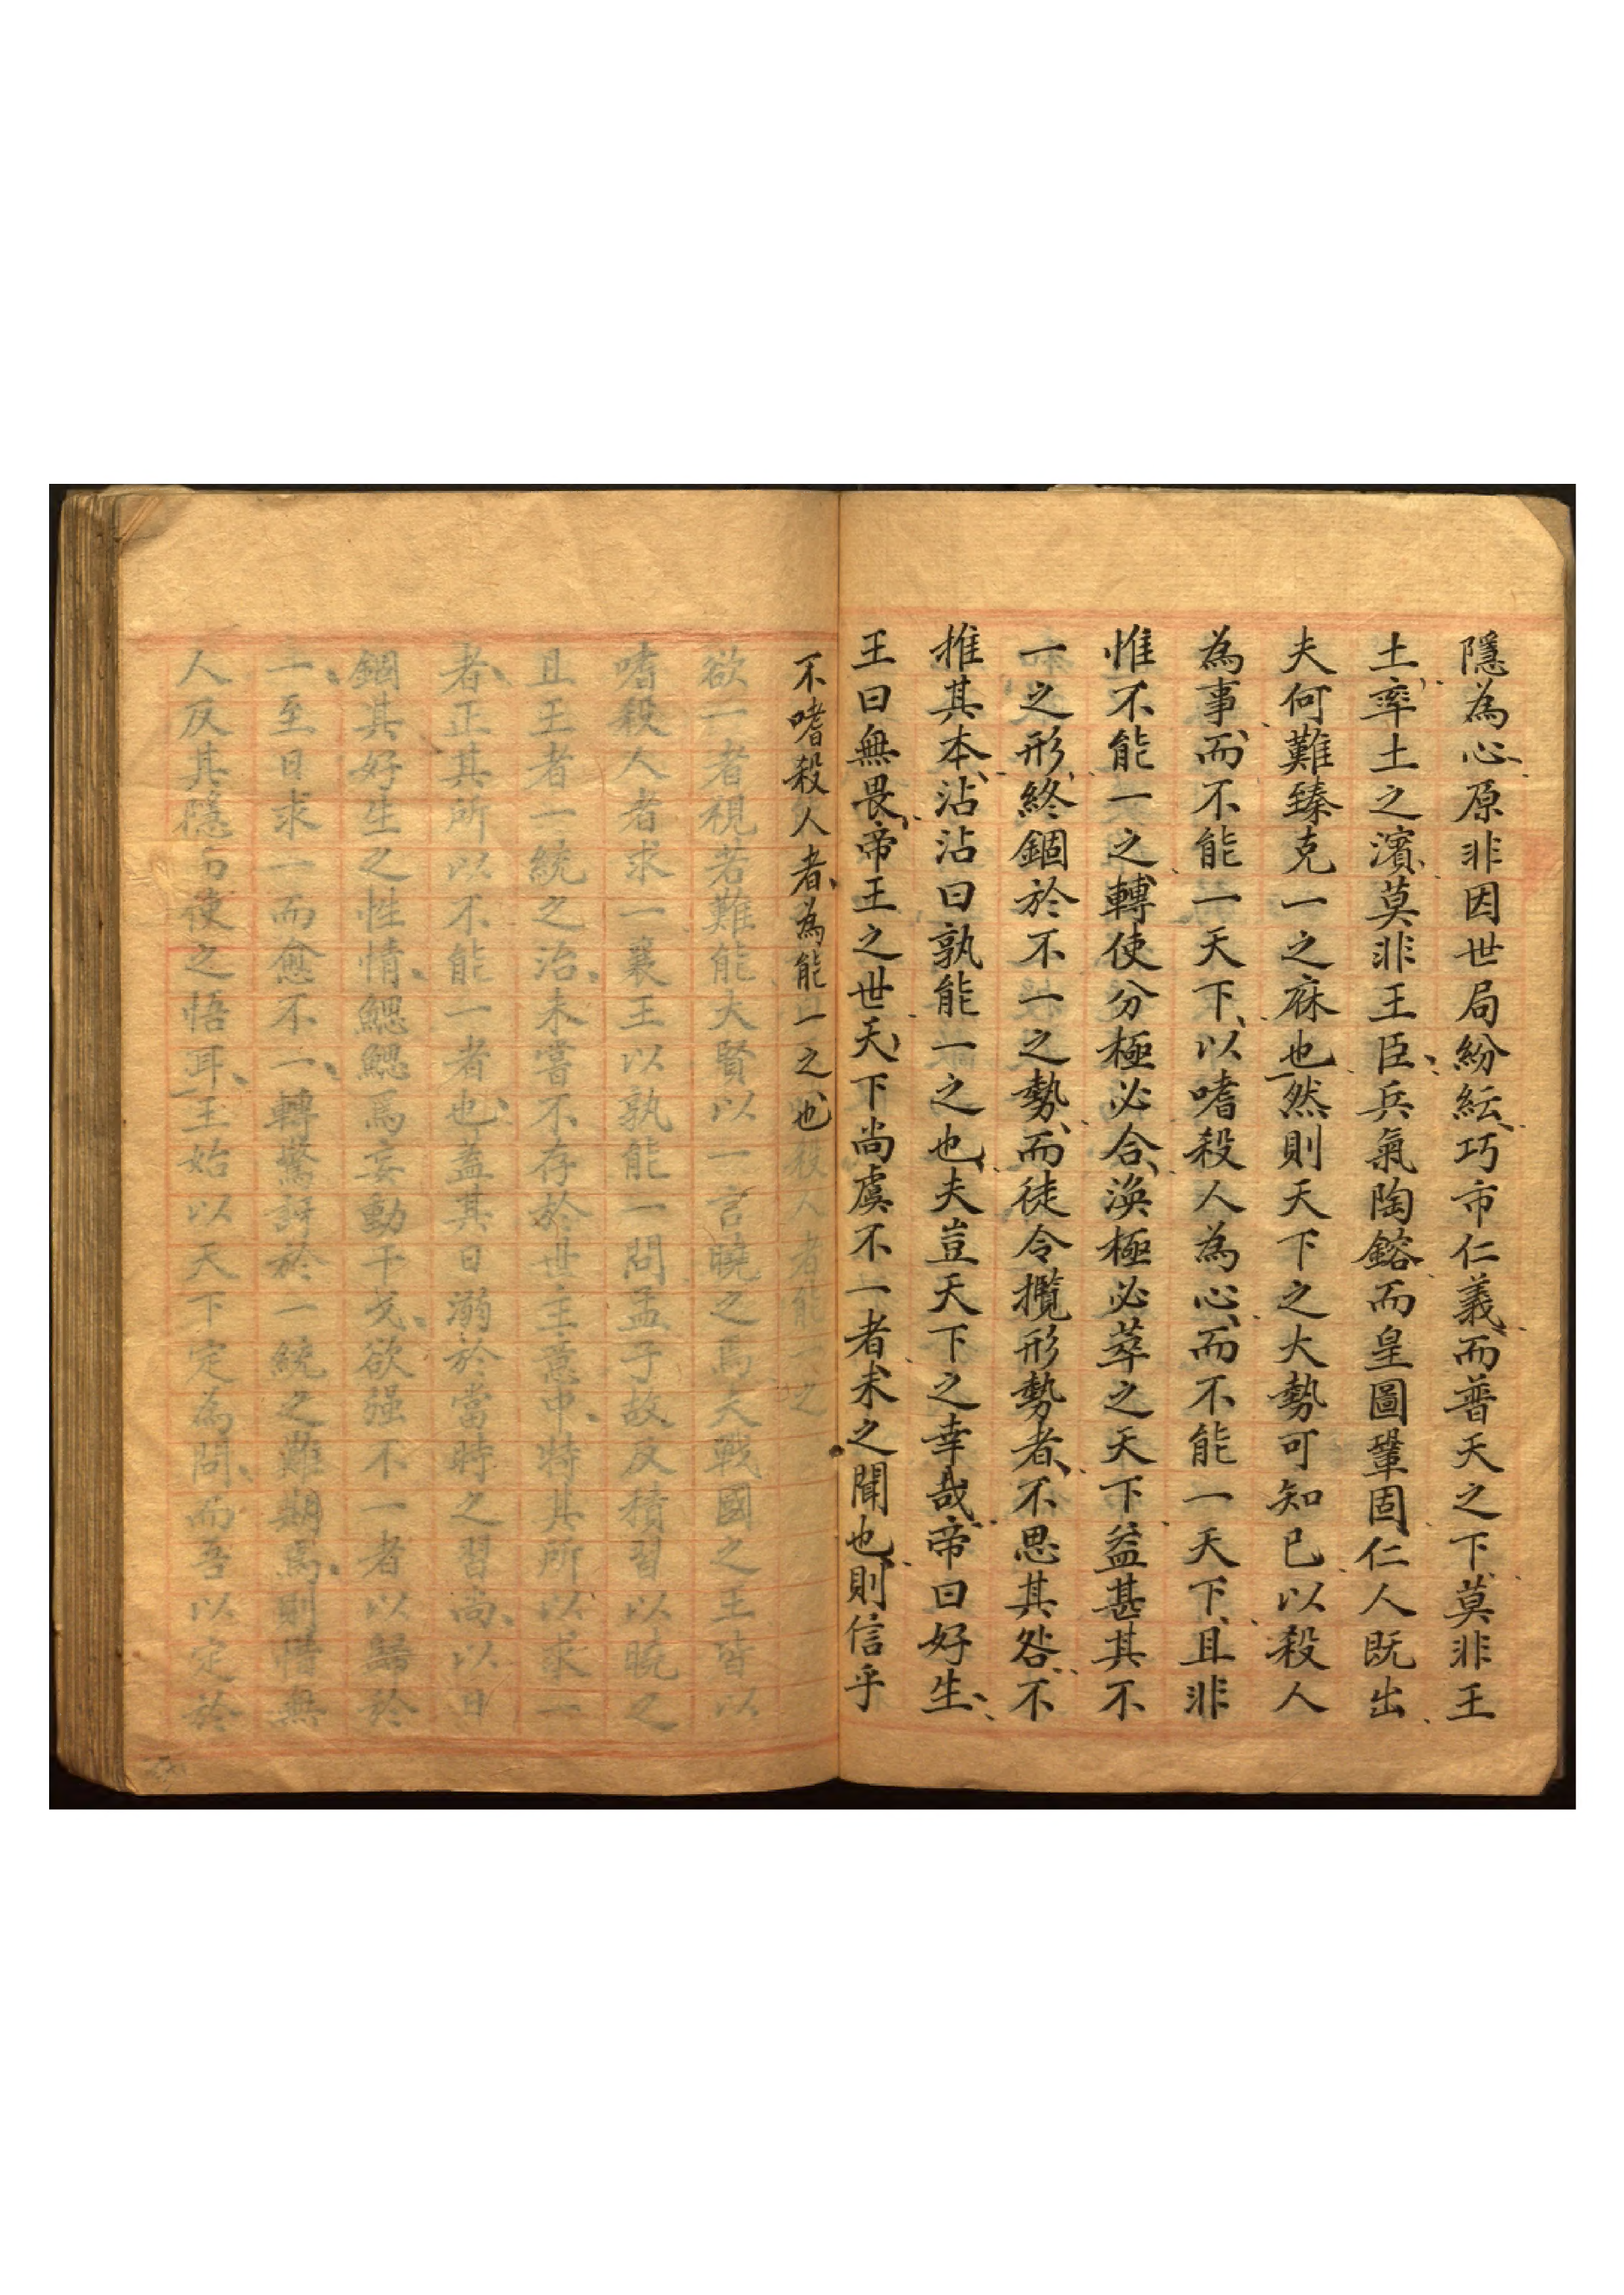 隱為心原非因世局紛紜巧市仁義而普天之下莫非王
土率土之濱莫非王臣兵氣陶鎔而皇圖鞏固仁人既出
夫何難臻克一之庥也然則天下之大勢可知已以殺人
為事而不能一天下以嗜殺人為心而不能一天下且非
惟不能一之轉使分極必合渙極必萃之天下益甚其不
一之形終錮於不一之勢而徒令攬形勢者不思其咎不
推其本沾沾曰孰能一之也夫豈天下之幸哉帝曰好生
王曰無畏帝王之世天下尚虞不一者未之聞也則信乎
不嗜殺人者為能一之也
殺人者能一之
欲一者視若難能大賢以一言曉之焉夫戰國之王皆以
嗜殺人者求一襄王以孰能一問孟子故反積習以曉之
且王者一統之治未嘗不存於世主意中特其所以求一
者正其所以不能一者也蓋其日溺於當時之習尚以日
錮其好生之性情鰓鰓焉妄動干戈欲强不一者以歸於
一至日求一而愈不一轉驚訝於一統之難期焉則惜無
人反其隱而使之悟耳王始以天下定為問而吾以定於